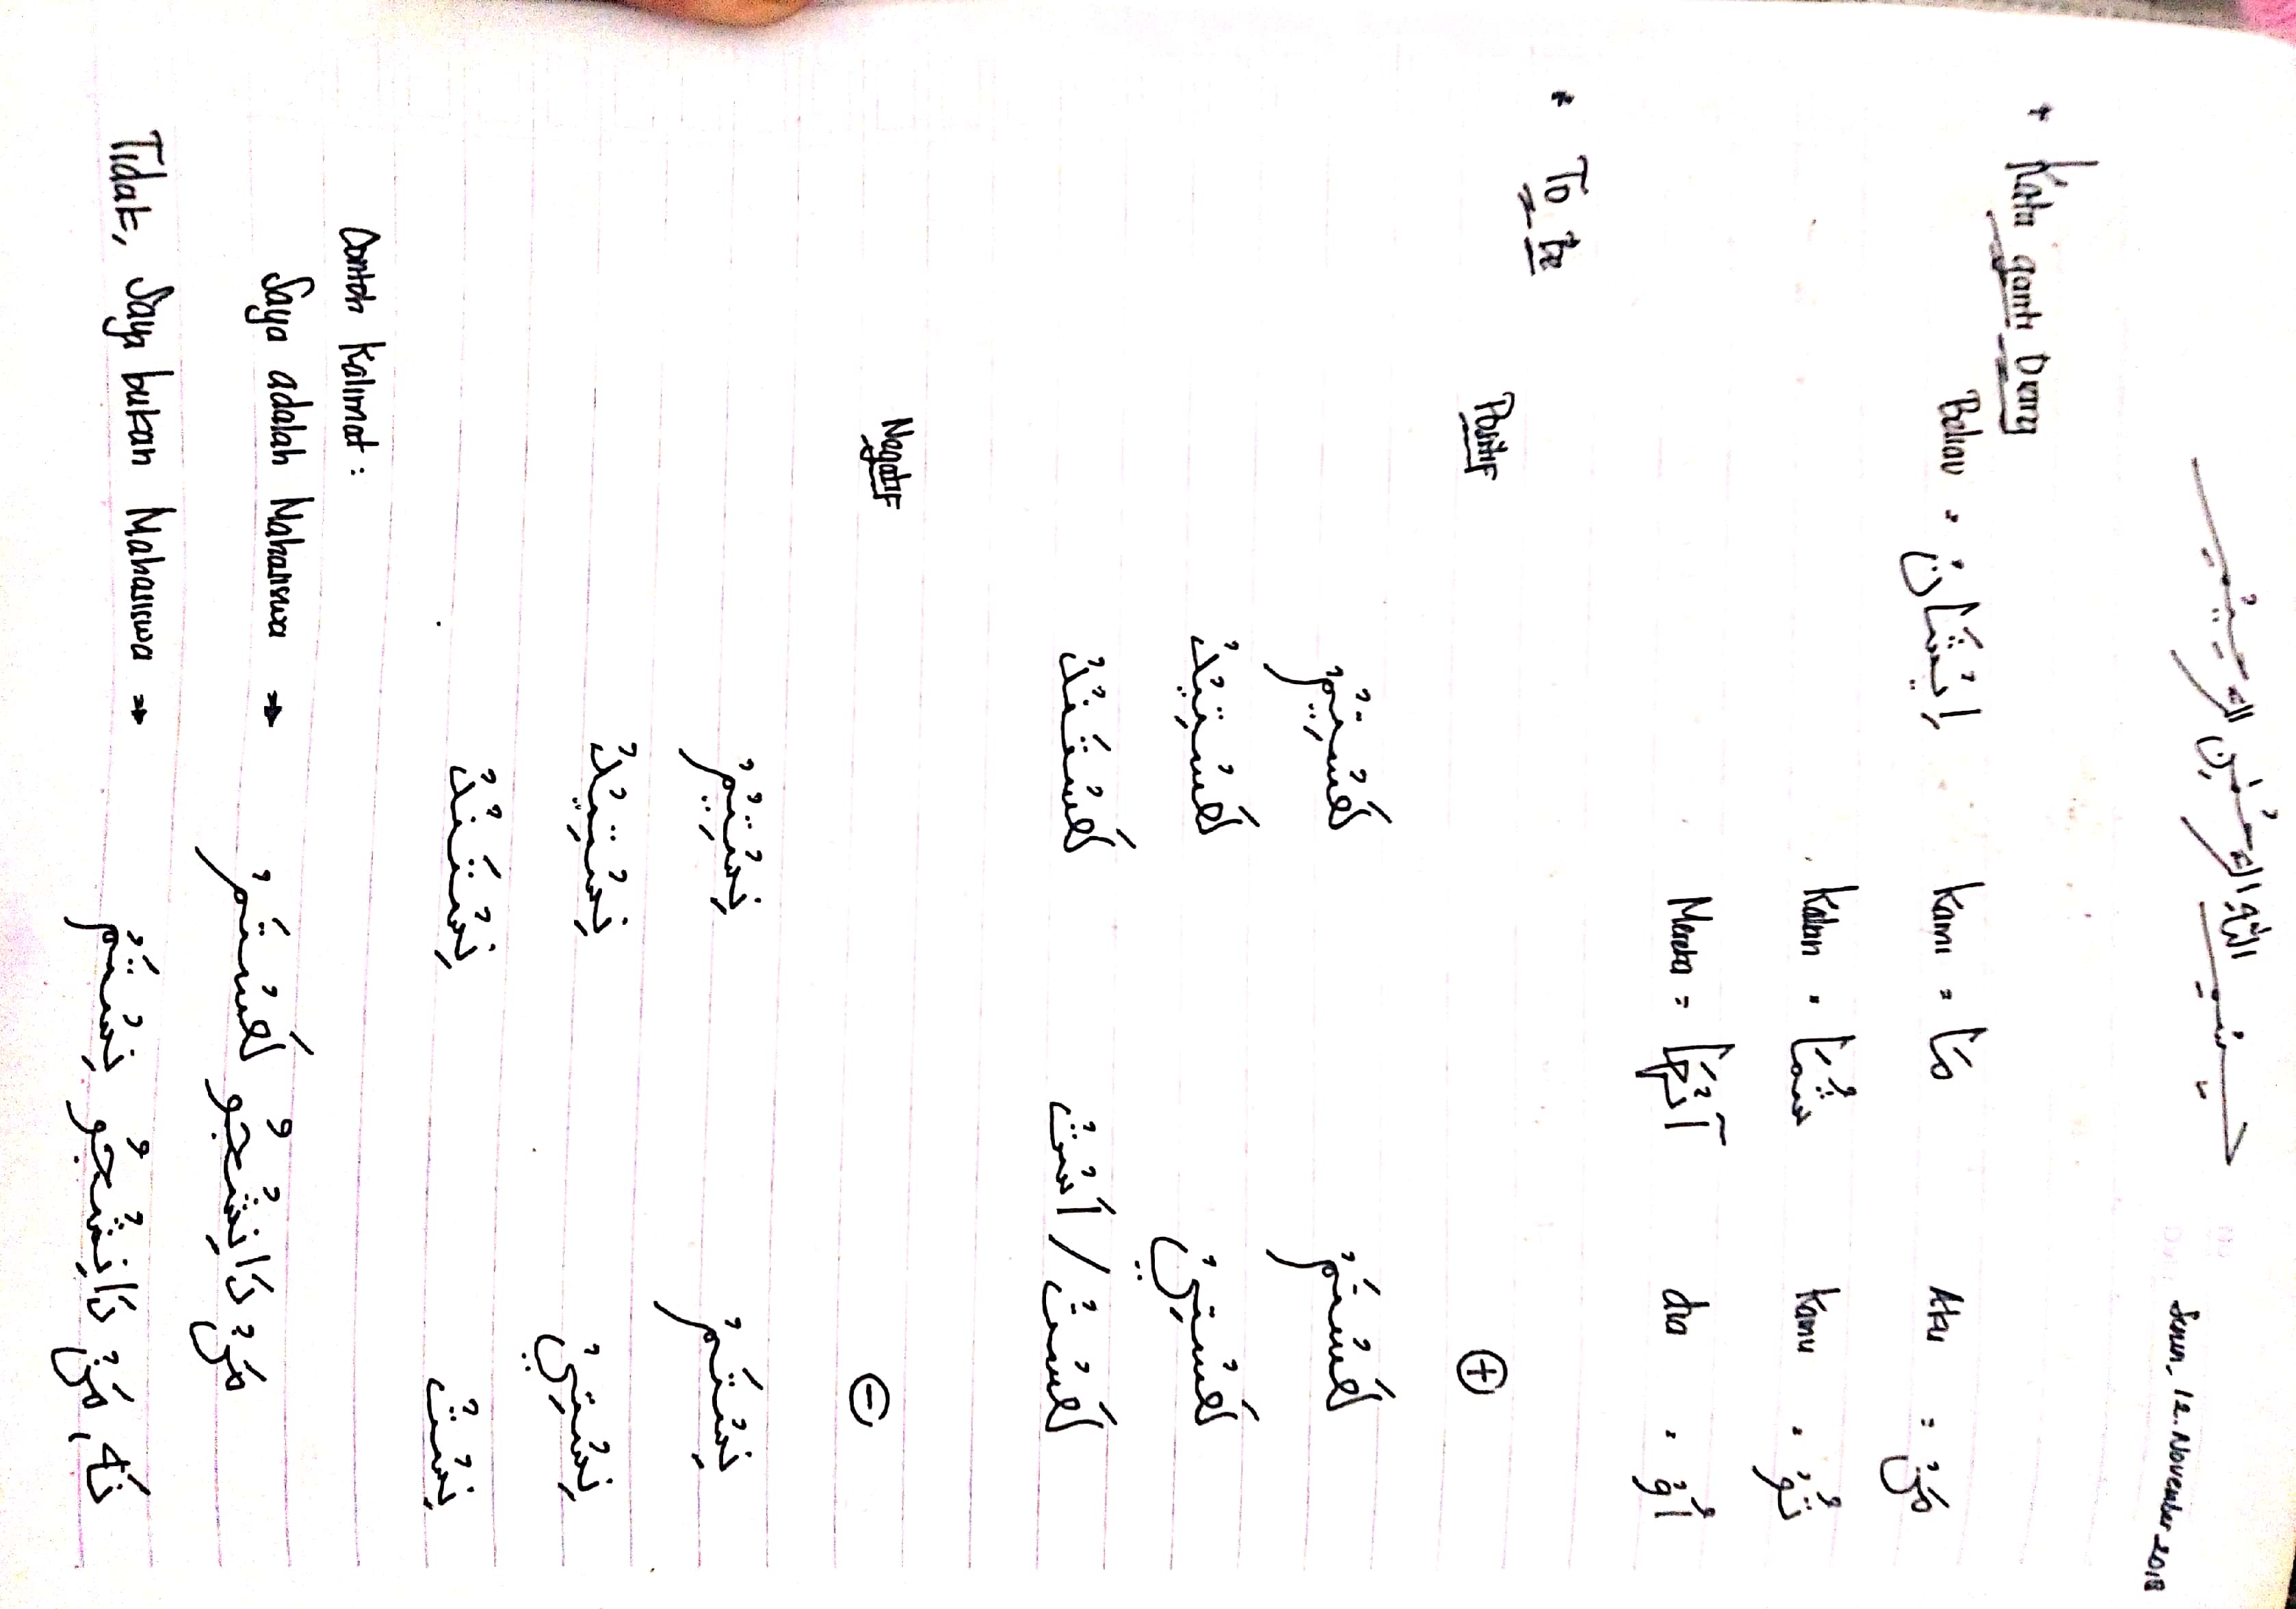 بِسْمِ اللّٰهِ الرَّحْمٰنِ الرَّحِيْمِ
Senin, 12. November 2018
+ Kata ganti Orang
Beliau = اِيْشَانْ Kami = مَا Aku = مَنْ
Kalian = شُمَا Kamu = تُوْ
Mereka = آنْهَا dia = اُوْ
* To be
Positif (+)
هَسْتِيْمْ هَسْتَمْ
هَسْتِيْدْ هَسْتِيْ
هَسْتَنْدْ اَسْتْ / هَسْتْ
Negatif (-)
نِسْتِيْمْ نِسْتَمْ
نِسْتِيْدْ نِسْتِيْ
نِسْتَنْدْ نِسْتْ
Contoh Kalimat :
Saya adalah Mahasiswa → مَنْ دَانِشْجُو هَسْتَمْ
Tidak, Saya bukan Mahasiswa → نَه, مَنْ دَانِشْجُو نِسْتَمْ